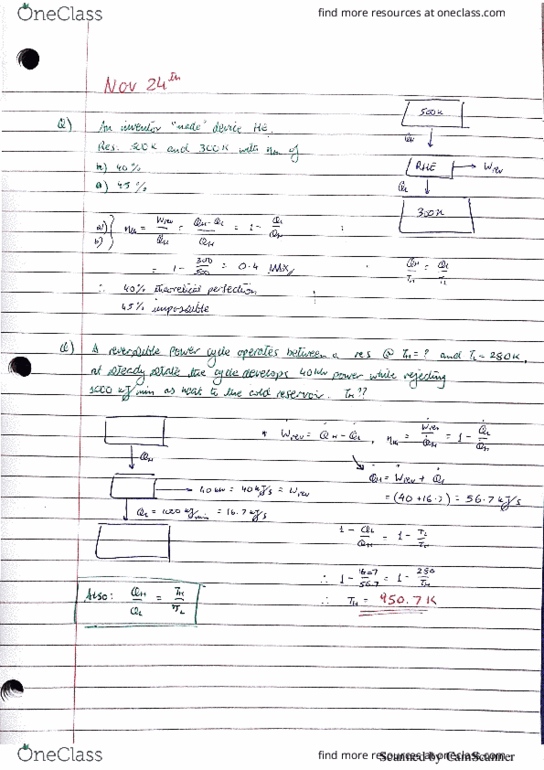 OneClass
find more resources at oneclass.com
Nov 24th
Q) An inventor "made" device HE.
Res. 500K and 300K with ηth of
b) 40%
a) 45%
500K
QH
RHE → Wrev
QL
300K
a) b) } ηth = Wrev/QH = QH-QL/QH = 1 - QL/QH
= 1 - 300/500 = 0.4 MAX,
QH/TH = QL/TL
∴ 40% theoretical perfection
45% impossible
Q) A reversible power cycle operates between a res @ TH = ? and TL = 280K,
at steady state the cycle develops 40kW power while rejecting
1000 kJ/min as heat to the cold reservoir. TH??
* Wrev = QH - QL , ηth = Wrev/QH = 1 - QL/QH
QH
QH = Wrev + QL
40kW = 40kJ/s = Wrev
= (40+16.7) = 56.7 kJ/s
QL = 1000 kJ/min = 16.7 kJ/s
1 - QL/QH = 1 - TL/TH
∴ 1 - 16.7/56.7 = 1 - 280/TH
Also: QH/QL = TH/TL
∴ TH = 950.7 K
OneClass
find more resources at oneclass.com
Scanned by CamScanner